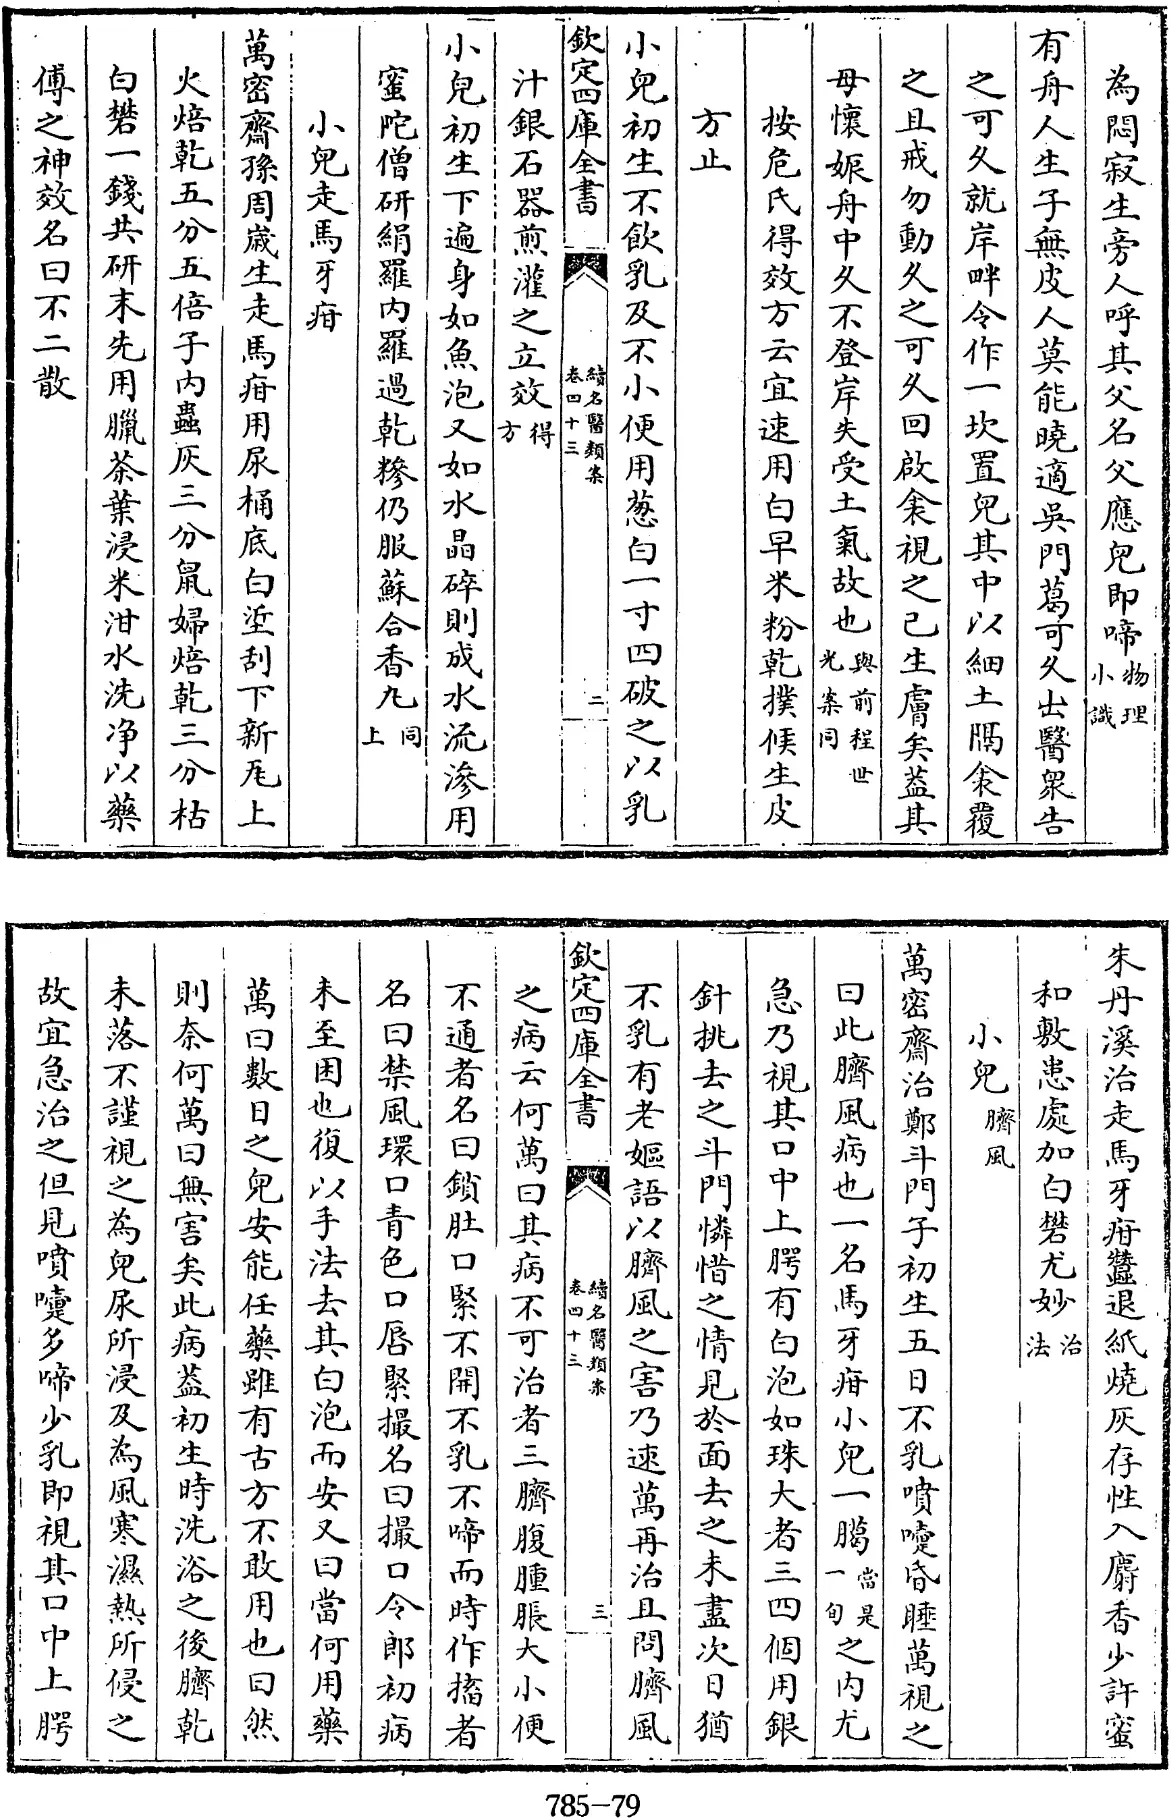 為悶寂生旁人呼其父名父應兒即啼物理小識
有舟人生子無皮人莫能曉適吳門葛可久出醫衆告
之可久就岸畔令作一坎置兒其中以細土隔衾覆
之且戒勿動久之可久回啟衾視之已生膚矣葢其
母懷娠舟中久不登岸失受土氣故也與前程世光案同
按危氏得效方云宜速用白早米粉乾撲候生皮
方止
小兒初生不飲乳及不小便用葱白一寸四破之以乳
欽定四庫全書
續名醫類案
卷四十三
二
汁銀石器煎灌之立效得方
小兒初生下遍身如魚泡又如水晶碎則成水流滲用
蜜陀僧研絹羅內羅過乾糝仍服蘇合香丸同上
小兒走馬牙疳
萬密齋孫周歲生走馬疳用尿桶底白垽刮下新瓦上
火焙乾五分五倍子內蟲灰三分鼠婦焙乾三分枯
白礬一錢共研末先用臘茶葉浸米泔水洗净以藥
傅之神效名曰不二散
朱丹溪治走馬牙疳蠶退紙燒灰存性入麝香少許蜜
和敷患處加白礬尤妙治法
小兒臍風
萬密齋治鄭斗門子初生五日不乳噴嚏昏睡萬視之
曰此臍風病也一名馬牙疳小兒一臈當是一旬之内尤
急乃視其口中上腭有白泡如珠大者三四個用銀
針挑去之斗門憐惜之情見於面去之未盡次日猶
不乳有老嫗語以臍風之害乃速萬再治且問臍風
欽定四庫全書
續名醫類案
卷四十三
三
之病云何萬曰其病不可治者三臍腹腫脹大小便
不通者名曰鎖肚口緊不開不乳不啼而時作搐者
名曰禁風環口青色口唇緊撮名曰撮口令郎初病
未至困也復以手法去其白泡而安又曰當何用藥
萬曰數日之兒安能任藥雖有古方不敢用也曰然
則奈何萬曰無害矣此病葢初生時洗浴之後臍乾
未落不謹視之為兒尿所浸及為風寒濕熱所侵之
故宜急治之但見噴嚏多啼少乳即視其口中上腭
785-79